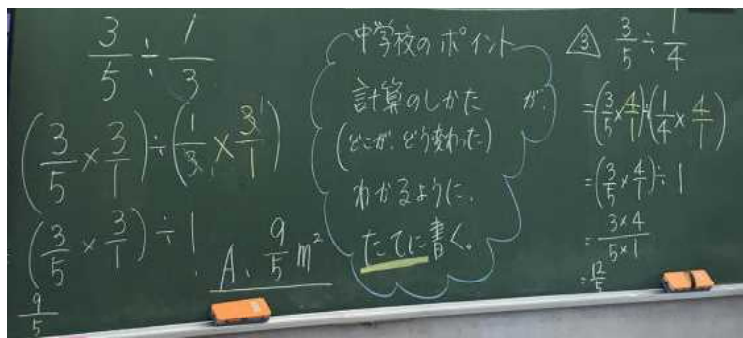 3/5 ÷ 1/3
(3/5 × 3/1) ÷ (1/3 × 3/1)
= (3/5 × 3/1) ÷ 1
9/5
A、9/5 m²
中学校のポイント
計算のしかたが、
(どこが、どう変わった)
わかるように、
たてに書く。
③ 3/5 ÷ 1/4
= (3/5 × 4/1) ÷ (1/4 × 4/1)
= (3/5 × 4/1) ÷ 1
= 3×4/5×1
= 12/5